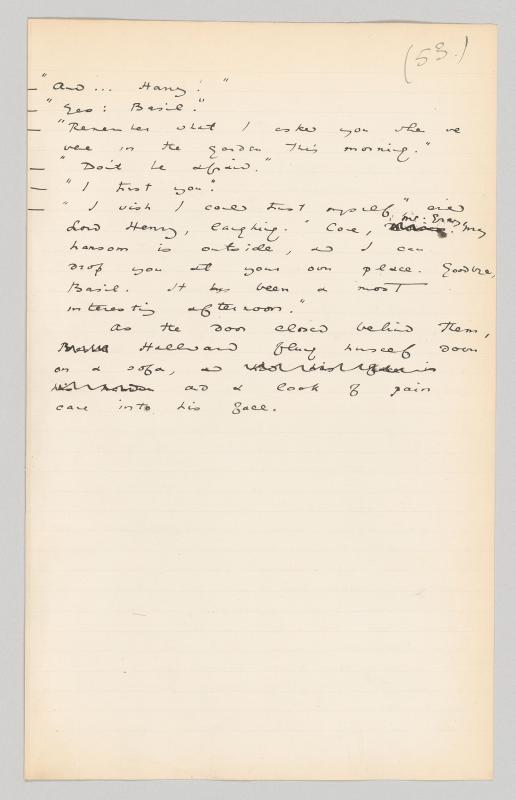 (53.)
"And... Harry!"
"Yes: Basil."
"Remember what I asked you when we
were in the garden this morning."
"Don't be afraid."
"I trust you".
"I wish I could trust myself," said
Mr. Gray, my
Lord Henry, laughing. "Come,
hansom is outside, and I can
drop you at your own place. Goodbye,
Basil. It has been a most
interesting afternoon."
As the door closed behind them,
Hallward flung himself down
on a sofa, and
and a look of pain
came into his face.